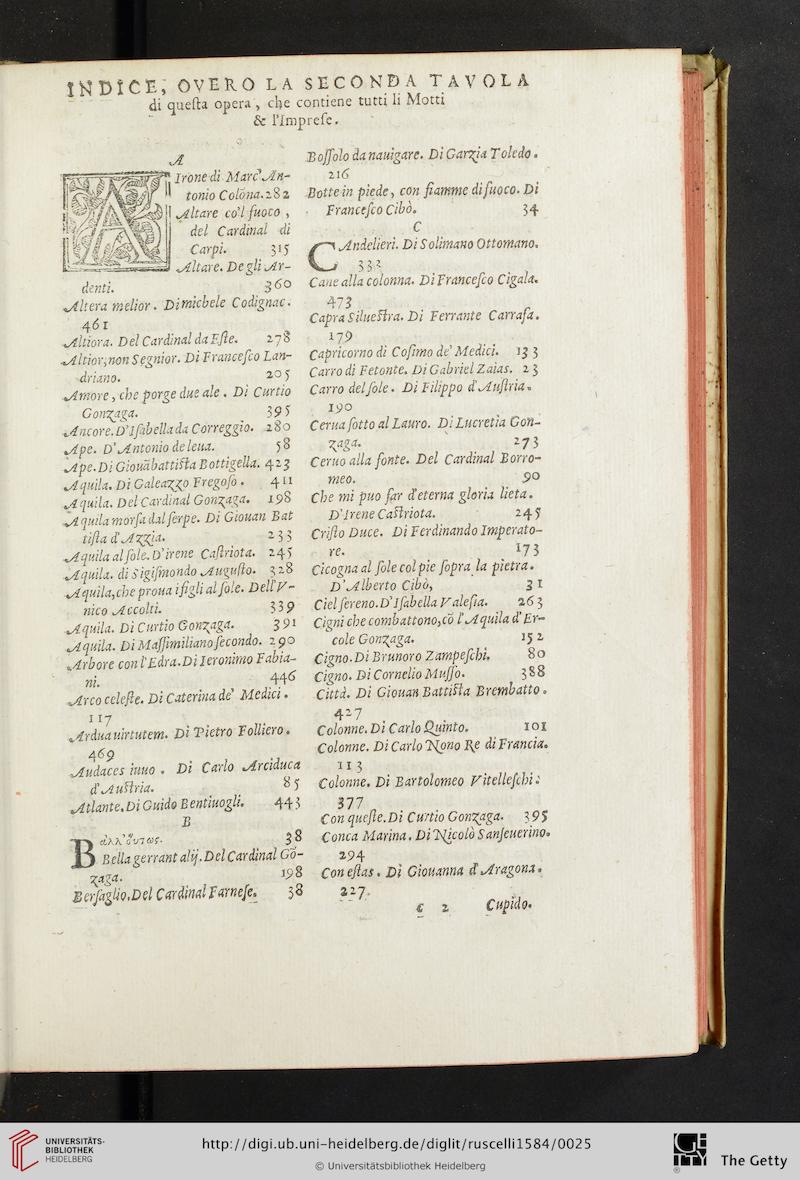 INDICE, OVERO LA SECONDA TAVOLA
di queſta opera, che contiene tutti li Motti
& l'Impreſe.
A
AIrone di Marc'An-
tonio Colōna. 282
Altare co'l fuoco,
del Cardinal di
Carpi. 315
Altare. De gli Ar-
denti. 360
Altera melior. Di michele Codignac.
461
Altiora. Del Cardinal da Eſte. 278
Altior, non Segnior. Di Franceſco Lan-
driano. 205
Amore, che porge due ale. Di Curtio
Gonzaga. 395
Ancore. D'Iſabella da Correggio. 280
Ape. D'Antonio de leua. 58
Ape. Di Giouābattiſta Bottigella. 423
Aquila. Di Galeazzo Fregoſo. 411
Aquila. Del Cardinal Gonzaga. 198
Aquila morſa dal ſerpe. Di Giouan Bat
tiſta d'Azzia. 233
Aquila al ſole. D'irene Caſtriota. 245
Aquila. di Sigiſmondo Auguſto. 328
Aquila, che proua i figli al ſole. Dell'V-
nico Accolti. 339
Aquila. Di Curtio Gonzaga. 391
Aquila. Di Maſſimiliano ſecondo. 290
Arbore con l'Edra. Di Ieronimo Fabia-
ni. 446
Arco celeſte. Di Caterina de' Medici.
117
Ardua uirtutem. Di Pietro Folliero.
469
Audaces iuuo. Di Carlo Arciduca
d'Auſtria. 85
Atlante. Di Guido Bentiuogli. 443
B
Βάλλ' οὕτως. 38
Bella gerrant alij. Del Cardinal Gō-
zaga. 198
Berſaglio. Del Cardinal Farneſe. 38
Boſſolo da nauigare. Di Garzia Toledo.
216
Botte in piede, con fiamme di fuoco. Di
Franceſco Cibò. 34
C
CAndelieri. Di Solimano Ottomano.
333
Cane alla colonna. Di Franceſco Cigala.
473
Capra Silueſtra. Di Ferrante Carrafa.
179
Capricorno di Coſimo de' Medici. 133
Carro di Fetonte. Di Gabriel Zaias. 23
Carro del ſole. Di Filippo d'Auſtria.
190
Cerua ſotto al Lauro. Di Lucretia Gon-
zaga. 273
Ceruo alla fonte. Del Cardinal Borro-
meo. 90
Che mi puo far d'eterna gloria lieta.
D'Irene Caſtriota. 245
Criſto Duce. Di Ferdinando Imperato-
re. 173
Cicogna al ſole col pie ſopra la pietra.
D'Alberto Cibò, 31
Ciel ſereno. D'Iſabella Valeſia. 263
Cigni che combattono, cō l'Aquila d'Er-
cole Gonzaga. 152
Cigno. Di Brunoro Zampeſchi. 80
Cigno. Di Cornelio Muſſo. 388
Città. Di Giouan Battiſta Brembatto.
427
Colonne. Di Carlo Quinto. 101
Colonne. Di Carlo Nono Re di Francia.
113
Colonne. Di Bartolomeo Vitelleſchi.
377
Con queſte. Di Curtio Gonzaga. 395
Conca Marina. Di Nicolò Sanſeuerino.
294
Con eſtas. Di Giouanna d'Aragona.
227.
c 2 Cupido.
UNIVERSITÄTS-
BIBLIOTHEK
HEIDELBERG
http://digi.ub.uni-heidelberg.de/diglit/ruscelli1584/0025
© Universitätsbibliothek Heidelberg
GETTY
The Getty